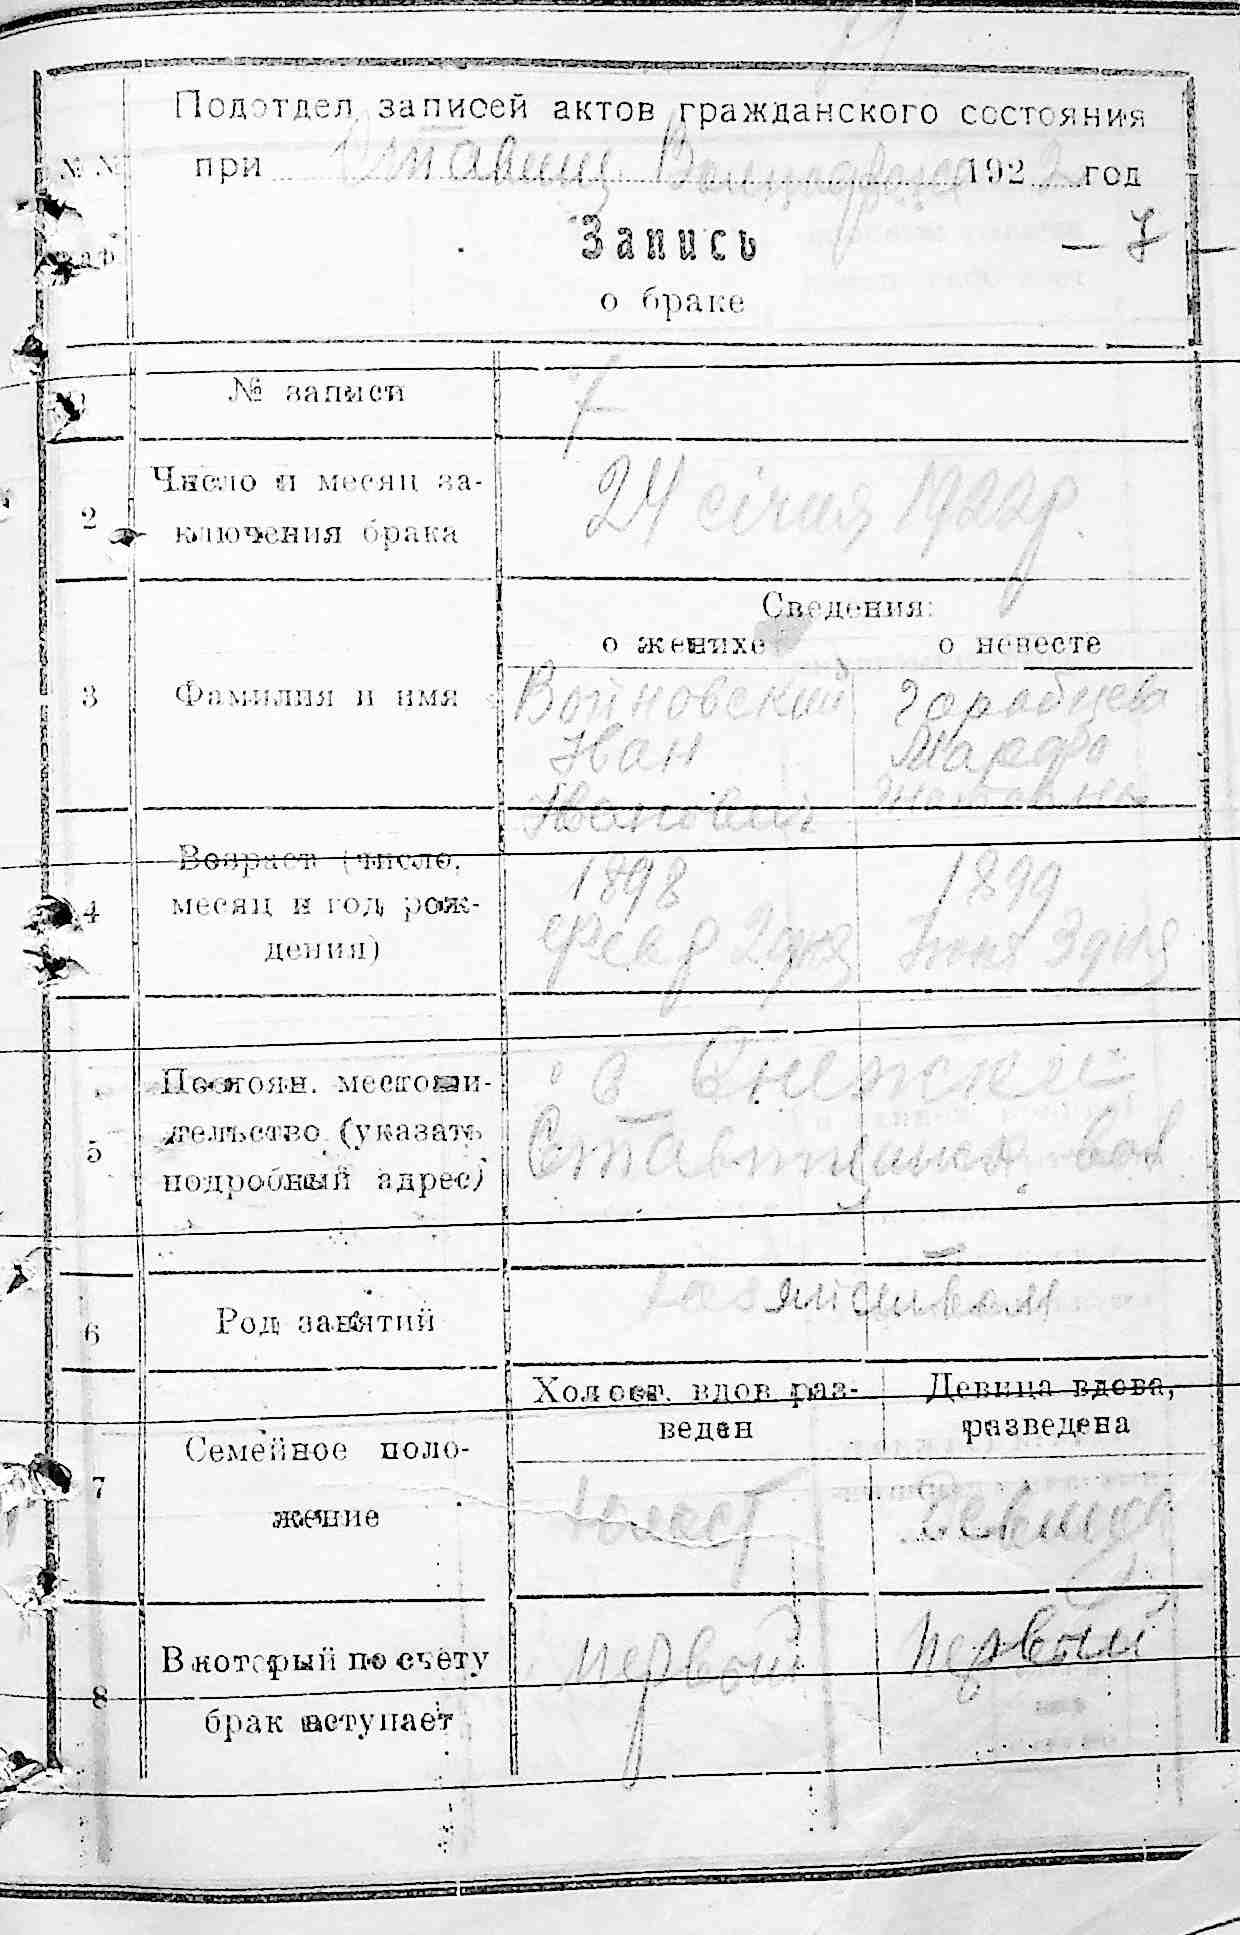 Подотдел записей актов гражданского состояния
при Ставищ. 1922 год
№ №
Запись
- 7 -
о браке
№ записи 7
2 Число и месяц за-
ключения брака
24 січня 1922 р.
Сведения:
о женихе о невесте
3 Фамилия и имя
Войновский
Иван
Иванович
Марфа
4 Возраст (число,
месяц и год рож-
дения)
1898 1899
Февр 2 дня 3 дня
5 Постоян. местожи-
тельство (указать
подробный адрес)
с
6 Род занятий
Холост. вдов раз-
веден
Девица вдова,
разведена
7 Семейное поло-
жение
холост девица
8 В который по счету
брак вступает
первый первый